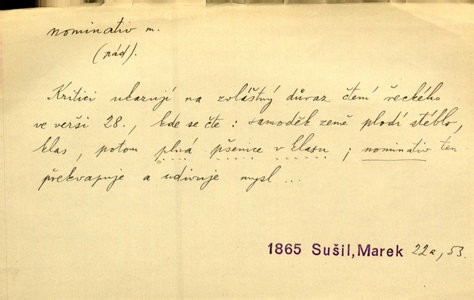 nominativ m.
(pád).
Kritici ukazují na zvláštný důraz čtení řeckého
ve verši 28., kde se čte: samoděk země plodí stéblo,
klas, potom plná pšenice v klasu; nominativ ten
překvapuje a udivuje mysl ...
1865 Sušil, Marek 22a, 53.